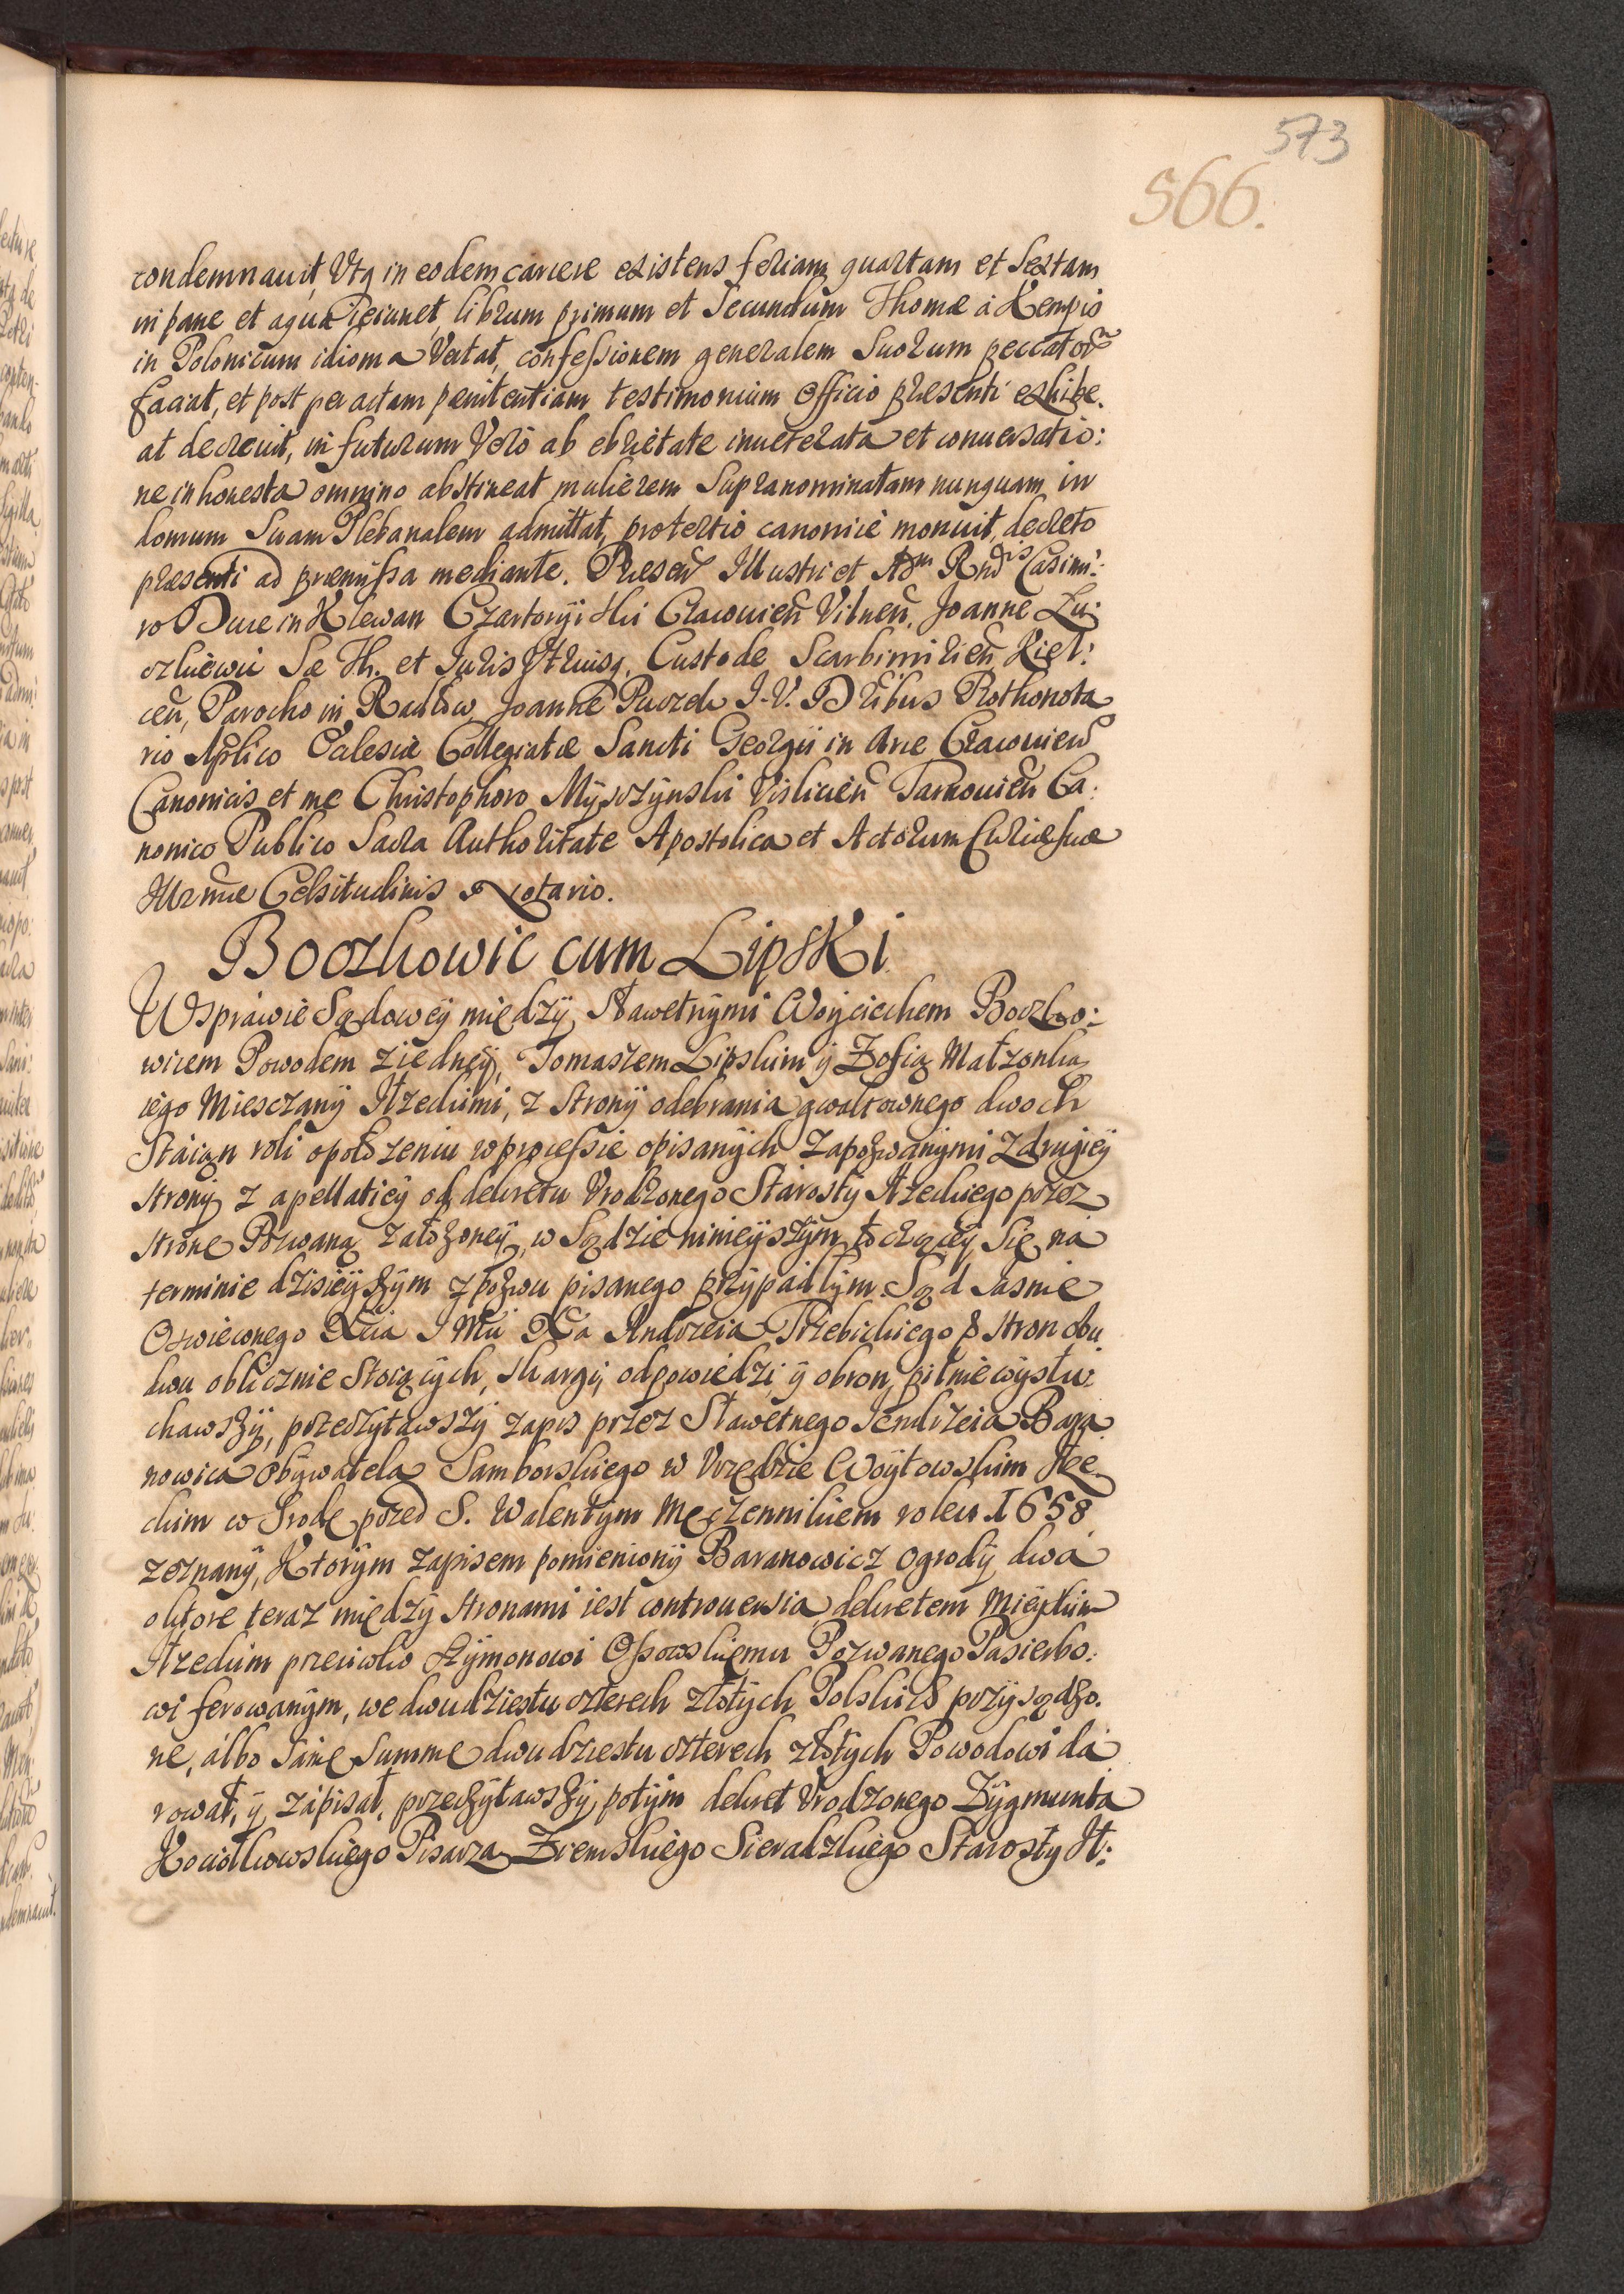 573
566.
condemnauit, Vtq in eodem carcere existens feriam quartam et Sextam
in pane et aqua Ieiunet, librum primum et Secundum Thomæ à Kempis
in Polonicum idioma Vertat, confeſsionem generalem Suorum peccator
faciat, et post peractam pænitentiam testimonium Officio præsenti exhibe.
at decreuit, in futurum Verò ab ebrietate inueterata et conuersatio:
ne inhonesta omnino abstineat mulierem Supranominatam nunquam in
domum Suam Plebanalem admittat, protertio canonicè monuit, decreto
præsenti ad præmiſsa mediante. Præsen Illustri et Adm Rndis Casimi:
ro Duce in Klewan Czartoryiski Cracouien Vilnen, Joanne Zu:
Sæ Th. et Juris Vtriusq, Custode Scarbimirien Kiel:
cen, Parocho in Radłow, Joanne J. V. Dribus Prothonota
rio Aplico Ecclesiæ Collegiatæ Sancti Georgii in Arce Cracouien
Canonicis et me Christophoro Mÿszÿnski Vislicien Tarnouien Ca:
nonico Publico Sacra Authoritate Apostolica et Actorum Curiæ suæ
Illrmæ Celsitudinis Notario.
Boczkowic cum Lipski
W Sprawie Sądoweÿ międzÿ Sławetnÿmi Woÿciechem Boczko:
wicem Powodem z iedneÿ, Tomaszem Lipskim ÿ Zofią Małzonką
iego Miesczanÿ Iłzeckimi, z Stronÿ odebrania gwałtownego dwoch
Staian roli o położeniu w proceſsie opisanÿch Zapozwanÿmi z drugieÿ
Stronÿ z apellacieÿ od dekretu Vrodzonego Starostÿ Iłzeckiego przez
Strone Pozwaną założoneÿ, w Sądzie ninieÿszÿm tocząceÿ Się, na
terminie dzisieÿszÿm z pozwu pisanego przÿpadłÿm Sąd Iasnie
Oswieconego Xcia I Mci Xa Andrzeia Trzebickiego Stron obu
dwu oblicznie Stoiącÿch, Skargi, odpowiedzi ÿ obron, pilnie wÿsłu:
chawszÿ, przeczÿtawszÿ zapis przez Sławetnego Iendrzeia Bara
nowica Obÿwatela Samborskiego w Vrzędzie Woÿtowskim Iłze
ckim w Srode przed S. Walentÿm Męczennikiem roku 1658
zeznanÿ, Ktorÿm zapisem pomienionÿ Baranowicz ogrodÿ dwa
o ktore teraz międzÿ Stronami iest controuersia, dekretem Mieÿskim
Iłzeckim przeciwko Szÿmonowi Oſsowskiemu Pozwanego Pasierbo:
wi ferowanÿm, we dwudziestu czterech złotÿch Polskich przÿsądzo.
ne, albo Samę Summe dwudziestu czterech złotÿch Powodowi da
rował, ÿ zapisał, przeczÿtawszÿ potÿm dekret Vrodzonego Zÿgmunta
Kociełkowskiego Pisarza Ziemskiego Sieradzkiego Starostÿ Ił: